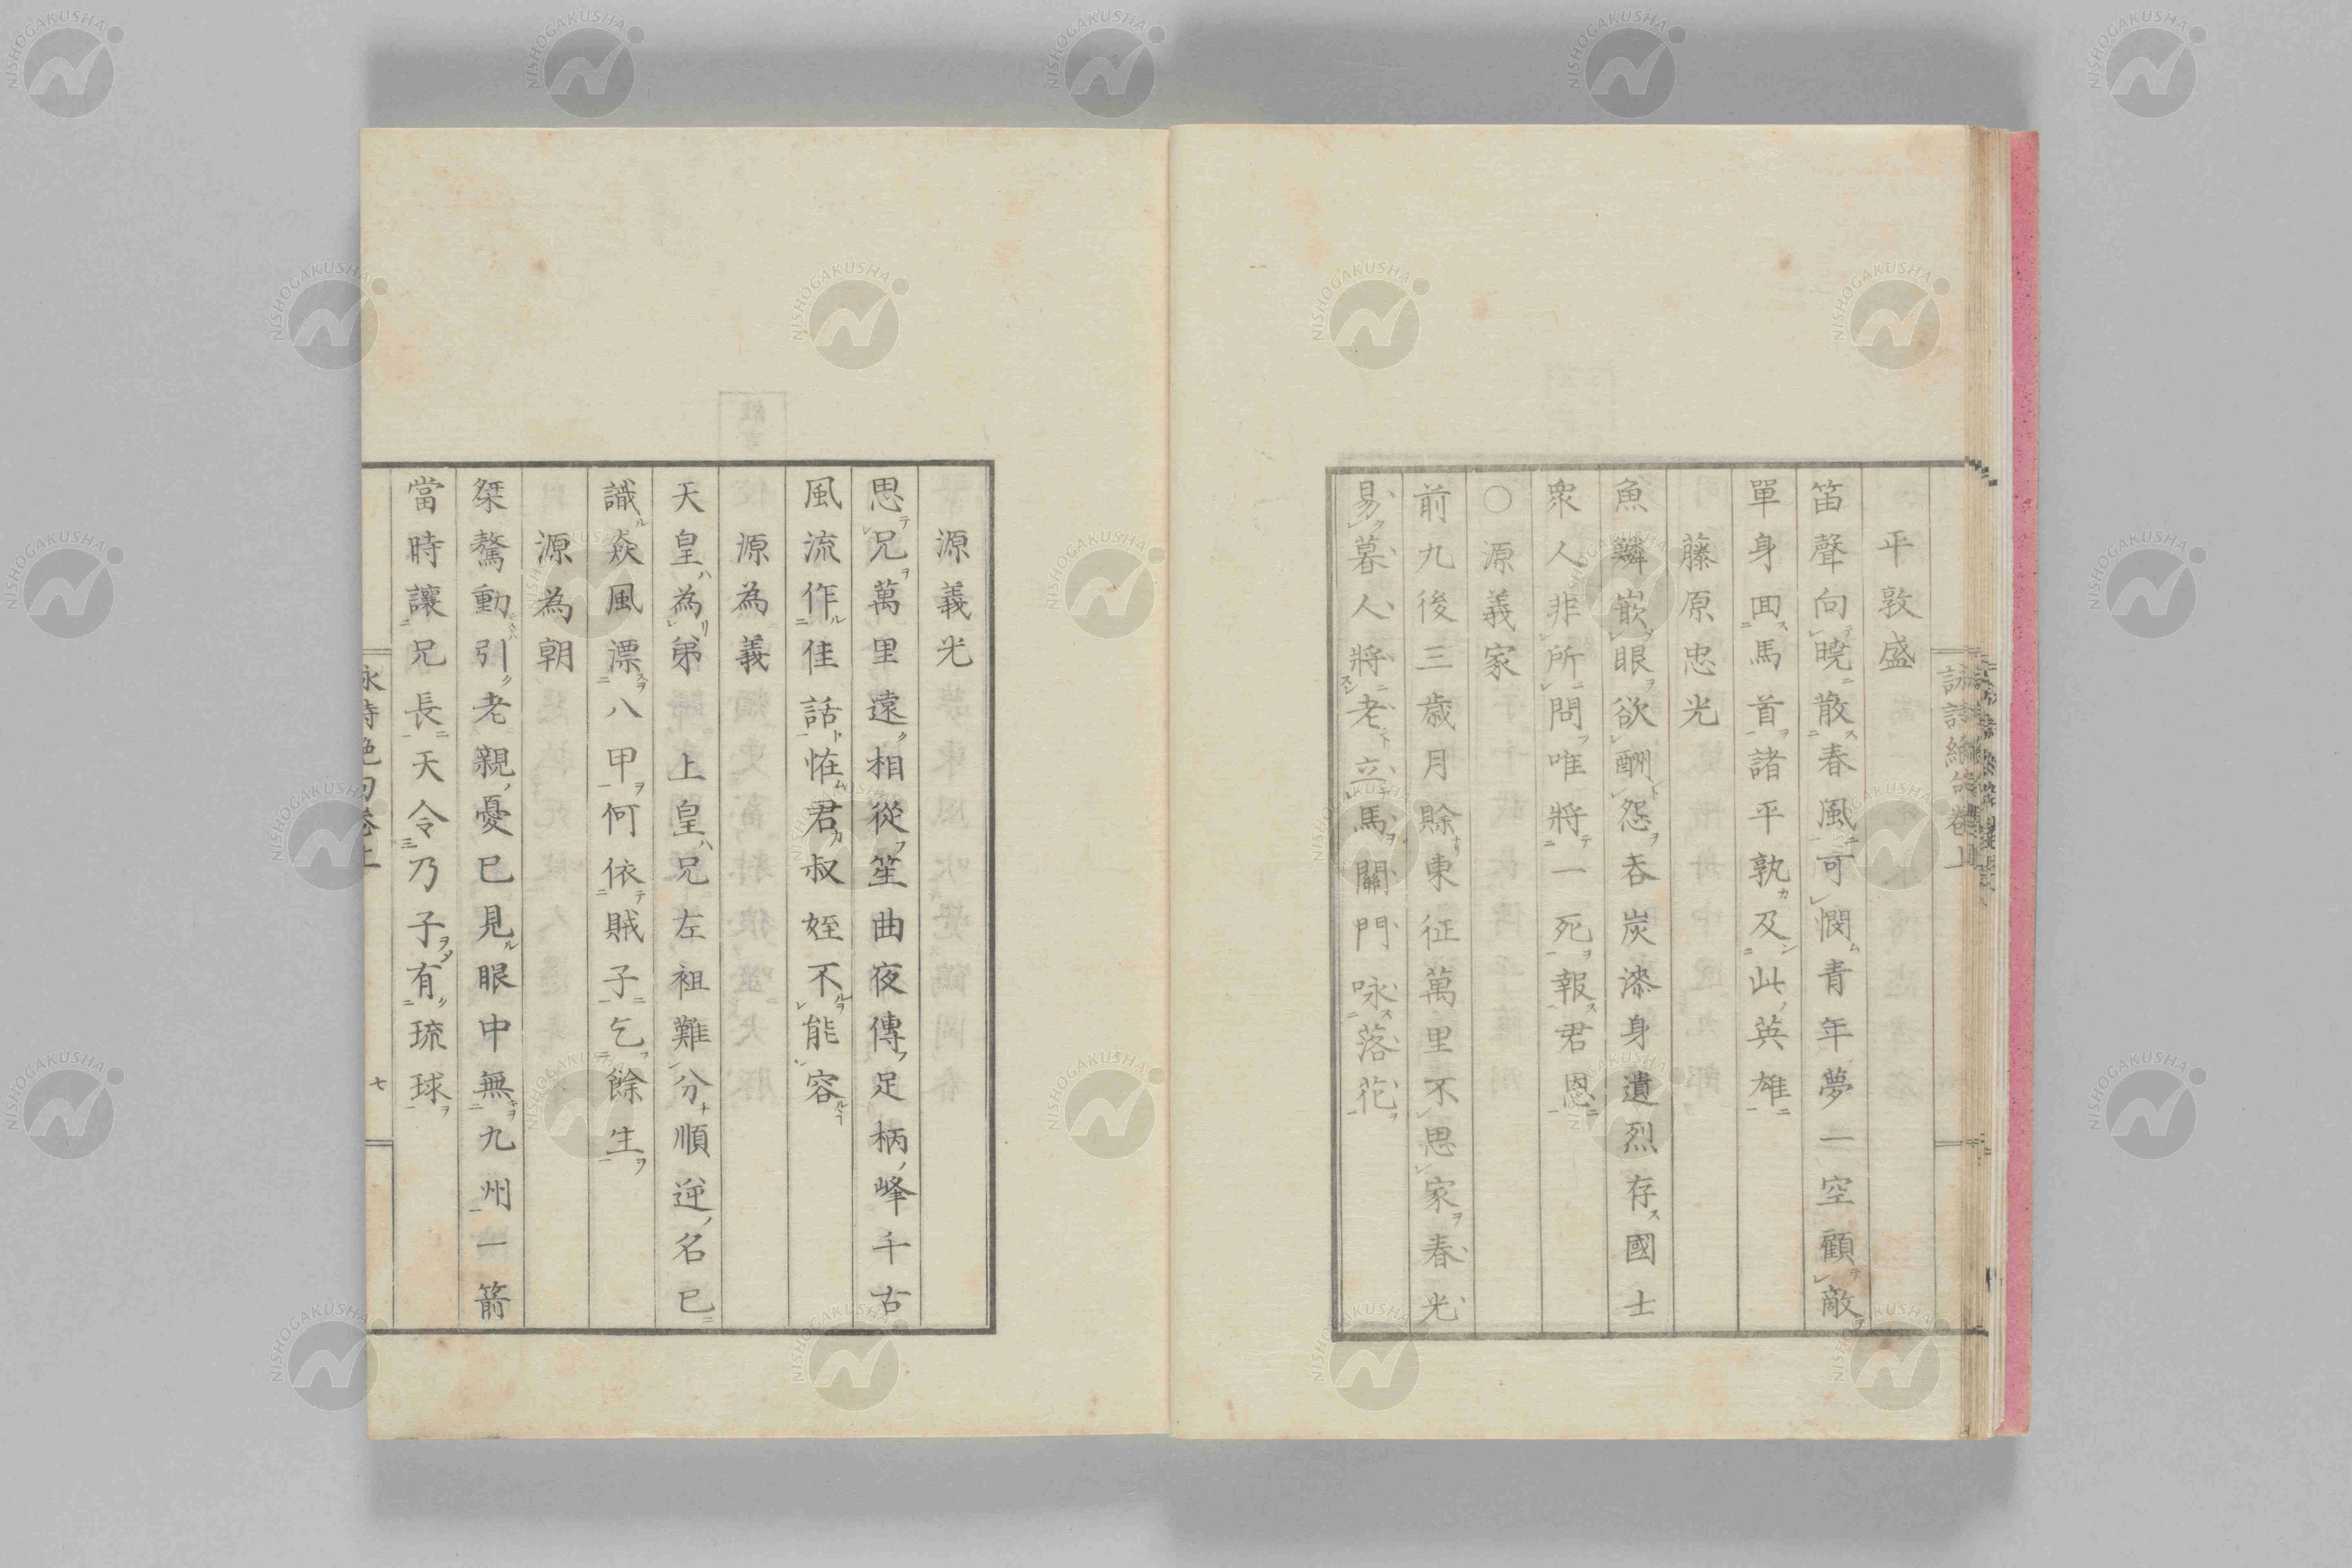 平敦盛
笛聲向曉散春風可憫青年夢一空顧敵
單身囬馬首諸平孰及此英雄
藤原忠光
魚鱗嵌眼欲酬怨吞炭漆身遺烈存國士
衆人非所問唯將一死報君恩
○源義家
前九後三歳月賒東征萬里不思家春光
易暮人將老立馬關門咏落花
源義光
思兄萬里遠相從笙曲夜傳足柄峰千古
風流作佳話恠君叔姪不能容
源為義
天皇為弟上皇兄左袒難分順逆名已
識猋風漂八甲何依賊子乞餘生
源為朝
桀驁動引老親憂已見眼中無九州一箭
當時讓兄長天令乃子有琉球
七
NISHOGAKUSHA